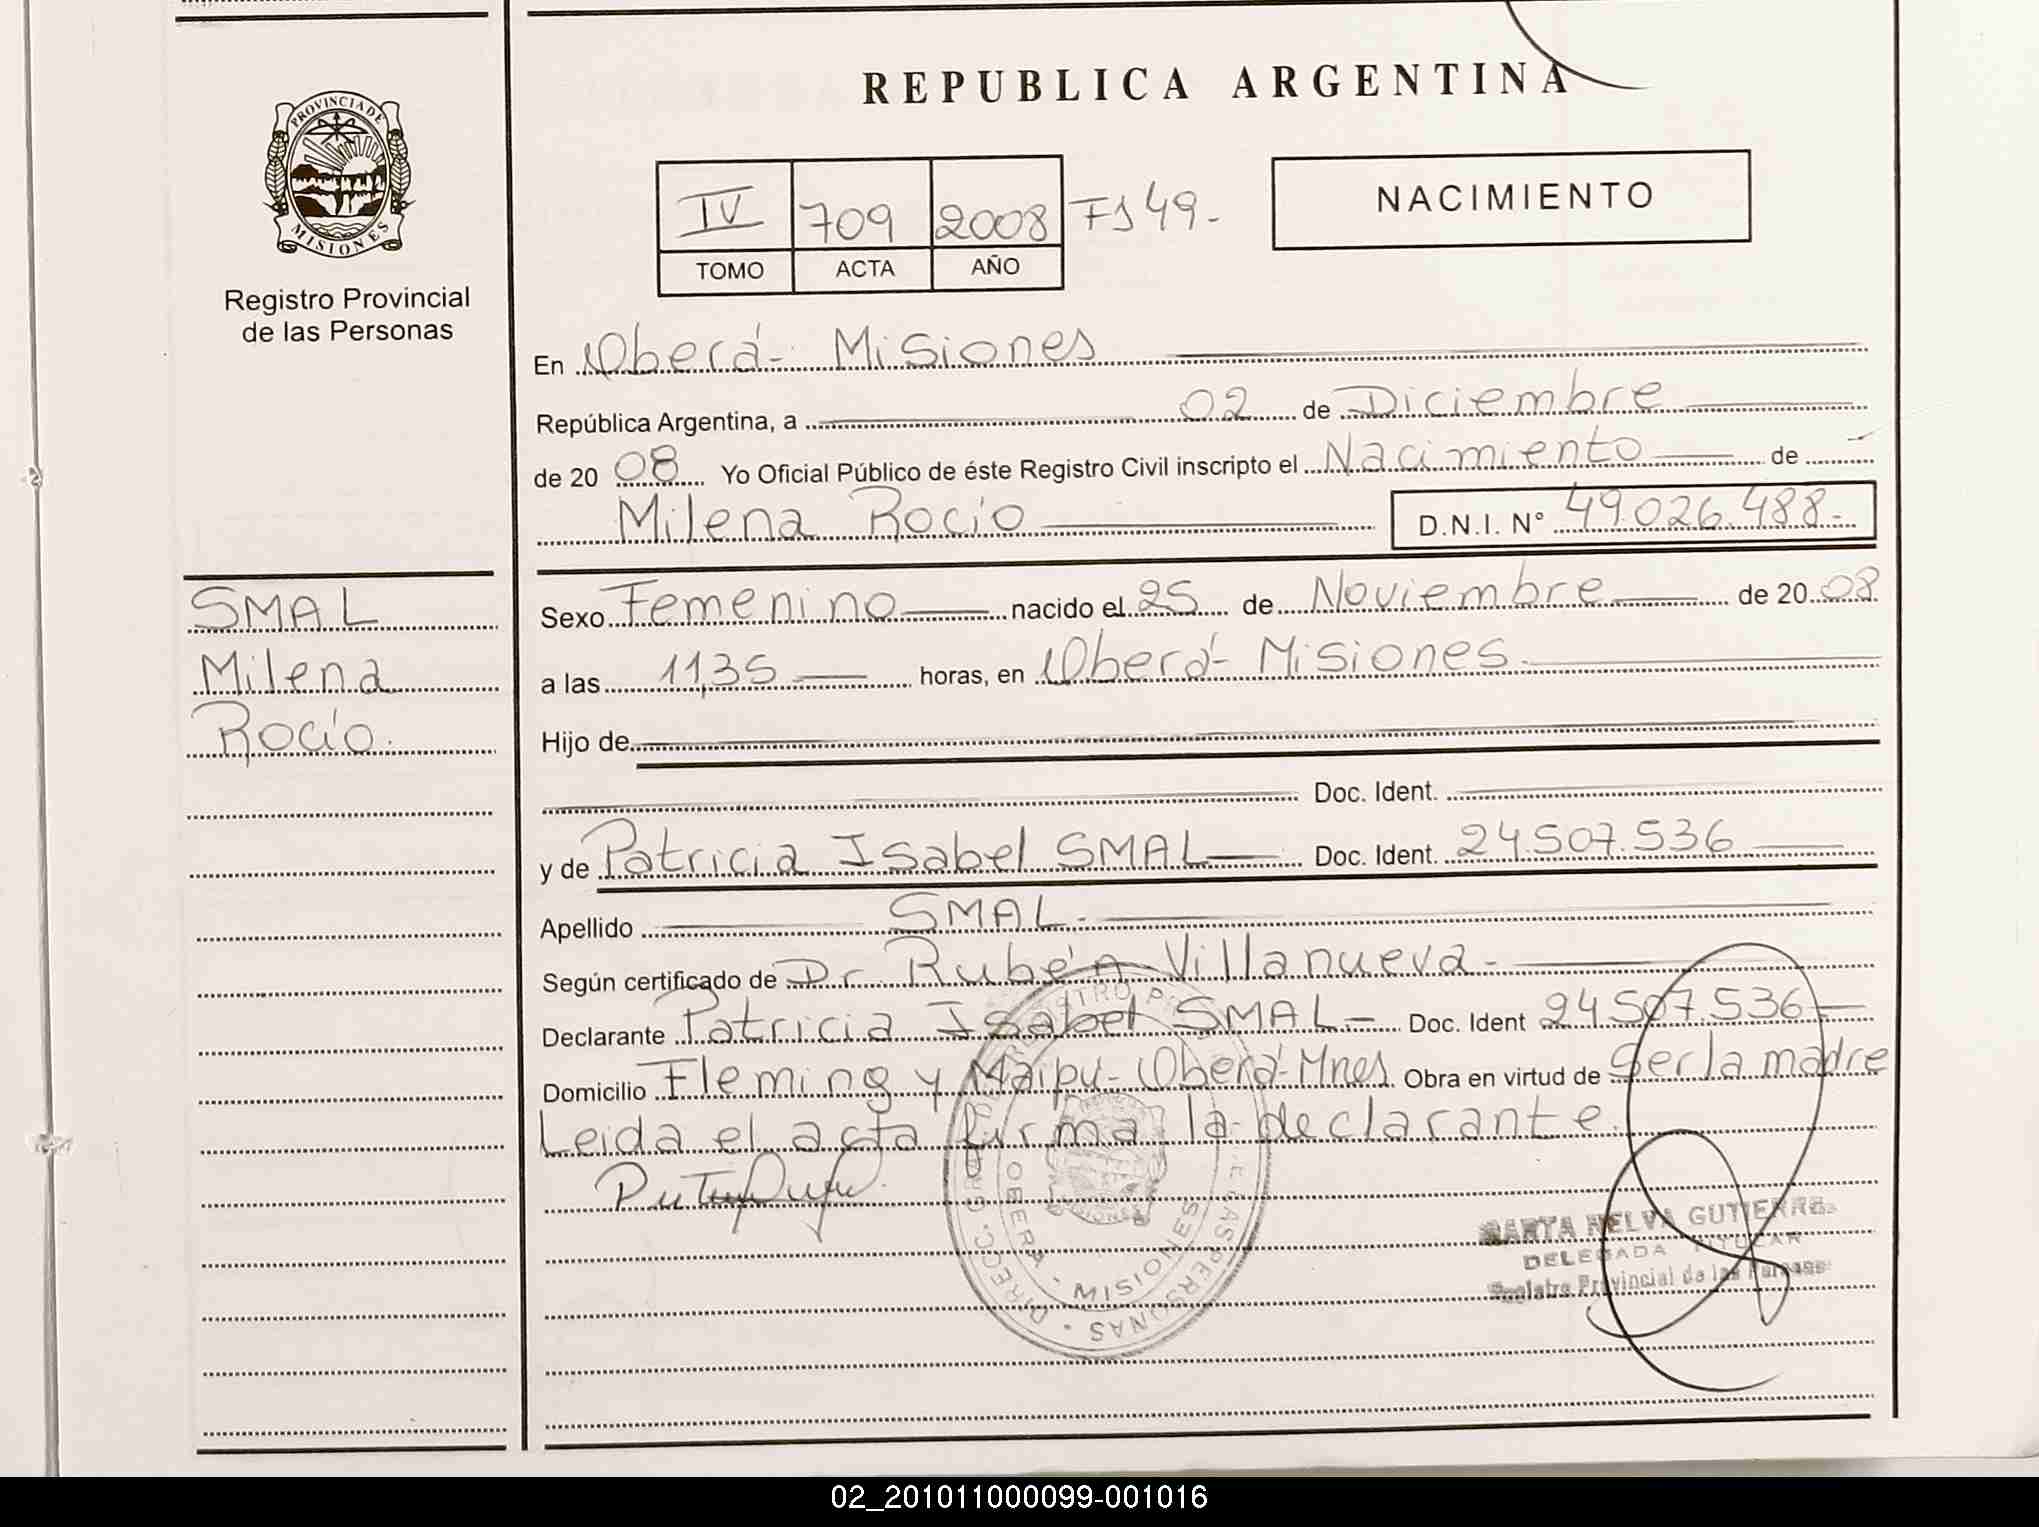 REPUBLICA ARGENTINA
PROVINCIA DE
MISIONES
Registro Provincial
de las Personas
IV 709 2008 Fº 49.-
TOMO ACTA AÑO
NACIMIENTO
En Oberá- Misiones
República Argentina, a 02 de Diciembre
de 20 08 Yo Oficial Público de éste Registro Civil inscripto el Nacimiento de
Milena Rocío D.N.I. N° 49.026.488.-
SMAL
Milena
Rocío.
Sexo Femenino nacido el 25 de Noviembre de 20 08
a las 11,35 horas, en Oberá- Misiones.
Hijo de
Doc. Ident.
y de Patricia Isabel SMAL Doc. Ident. 24.507.536
Apellido SMAL.
Según certificado de Dr. Rubén Villanueva.
Declarante Patricia Isabel SMAL- Doc. Ident 24507.536
Domicilio Fleming y Maipu- Oberá-Mnes. Obra en virtud de Ser la madre
Leida el acta firma la declarante.
OBERA - MISIONES
MARTA NELVA GUTIERREZ
DELEGADA TITULAR
Registro Provincial de las Personas
02_201011000099-001016